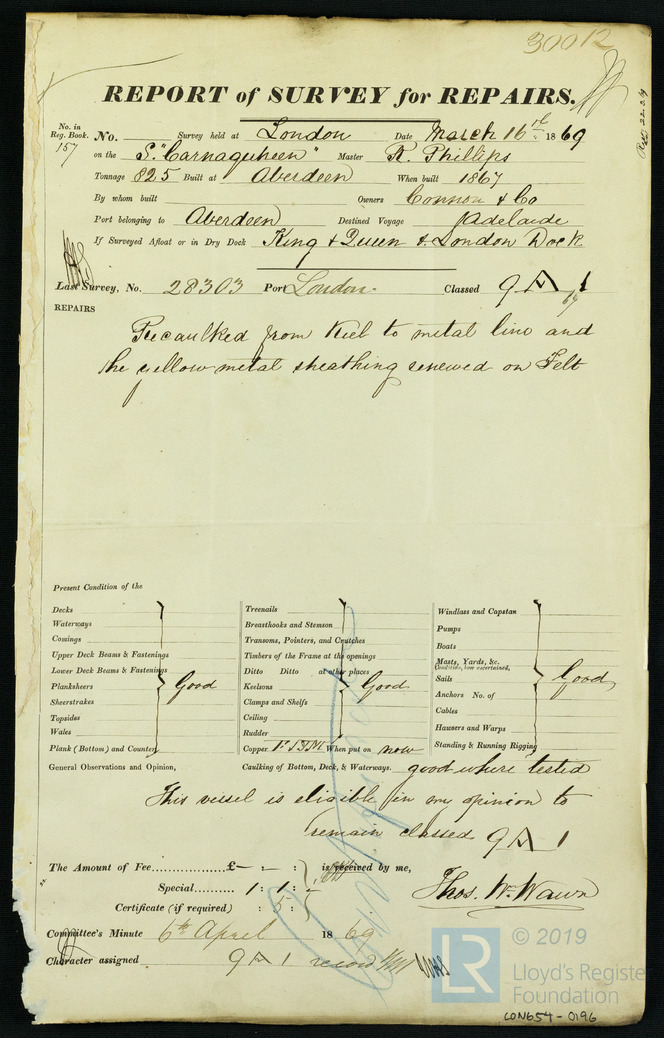 30012
REPORT of SURVEY for REPAIRS.
No. in Reg. Book. 157
No. Survey held at London Date March 16th 1869
on the S. "Carnaquheen" Master R. Phillips
Tonnage 825 Built at Aberdeen When built 1867
By whom built Owners Connon & Co
Port belonging to Aberdeen Destined Voyage Adelaide
If Surveyed Afloat or in Dry Dock King & Queen & London Dock
Last Survey, No. 28303 Port London. Classed 9 A 1
67
REPAIRS
Recaulked from Keel to metal line and
the yellow metal sheathing renewed on Felt
Present Condition of the
Decks
Waterways
Comings
Upper Deck Beams & Fastenings
Lower Deck Beams & Fastenings
Planksheers
Good
Sheerstrakes
Topsides
Wales
Plank (Bottom) and Counter
Treenails
Breasthooks and Stemson
Transoms, Pointers, and Crutches
Timbers of the Frame at the openings
Ditto Ditto at other places
Keelsons
Good
Clamps and Shelfs
Ceiling
Rudder
Copper F & YM When put on now
Windlass and Capstan
Pumps
Boats
Masts, Yards, &c.
Condition, how ascertained,
Sails
Good
Anchors No. of
Cables
Hawsers and Warps
Standing & Running Rigging
General Observations and Opinion, Caulking of Bottom, Deck, & Waterways. good where tested
This vessel is eligible in my opinion to
remain classed 9 A 1
The Amount of Fee £ – – : is received by me,
Special 1 : 1 : –
Certificate (if required) : 5 :
Thos. Wm. Wawn
Committee's Minute 6th April 1869
Character assigned 9 A 1 record
© 2019
LR
Lloyd's Register
Foundation
LON654-0196